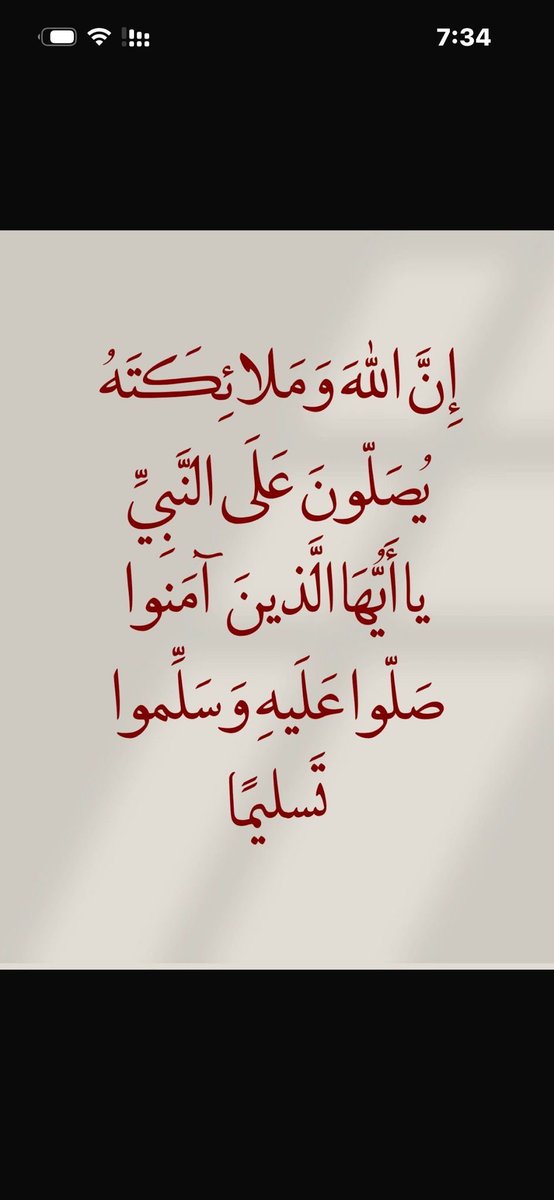 7:34
إِنَّ اللهَ وَمَلائِكَتَهُ
يُصَلّونَ عَلَى النَّبِيِّ
يا أَيُّهَا الَّذينَ آمَنوا
صَلّوا عَلَيهِ وَسَلِّموا
تَسليمًا